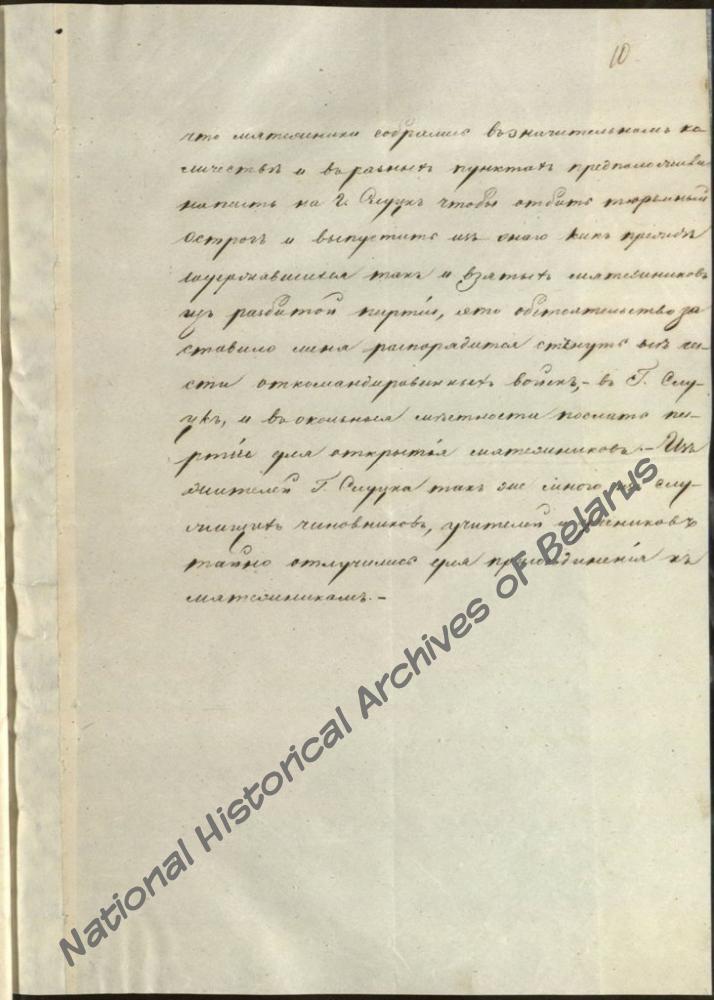 10
что мятежники собрались въ значительномъ ко
личествѣ и въ разныхъ пунктахъ предположива
напасть на г. Слуцкъ чтобы отбить тюремный
Острогъ и выпустить изъ онаго какъ прежде
содержавшихся такъ и взятыхъ мятежниковъ
изъ разбитой партіи, это обстоятельство за
ставило меня распорядится стянуть всѣ ча-
сти откомандированныхъ войскъ, - въ Г. Слу-
цкъ, и въ окольныя мѣстности послать па-
ртіи для открытія мятежниковъ. - Изъ
жителей Г. Слуцка такъ же много изъ слу-
жащихъ чиновниковъ, учителей и учениковъ
тайно отлучились для присоединенія къ
мятежникамъ. -
National Historical Archives of Belarus